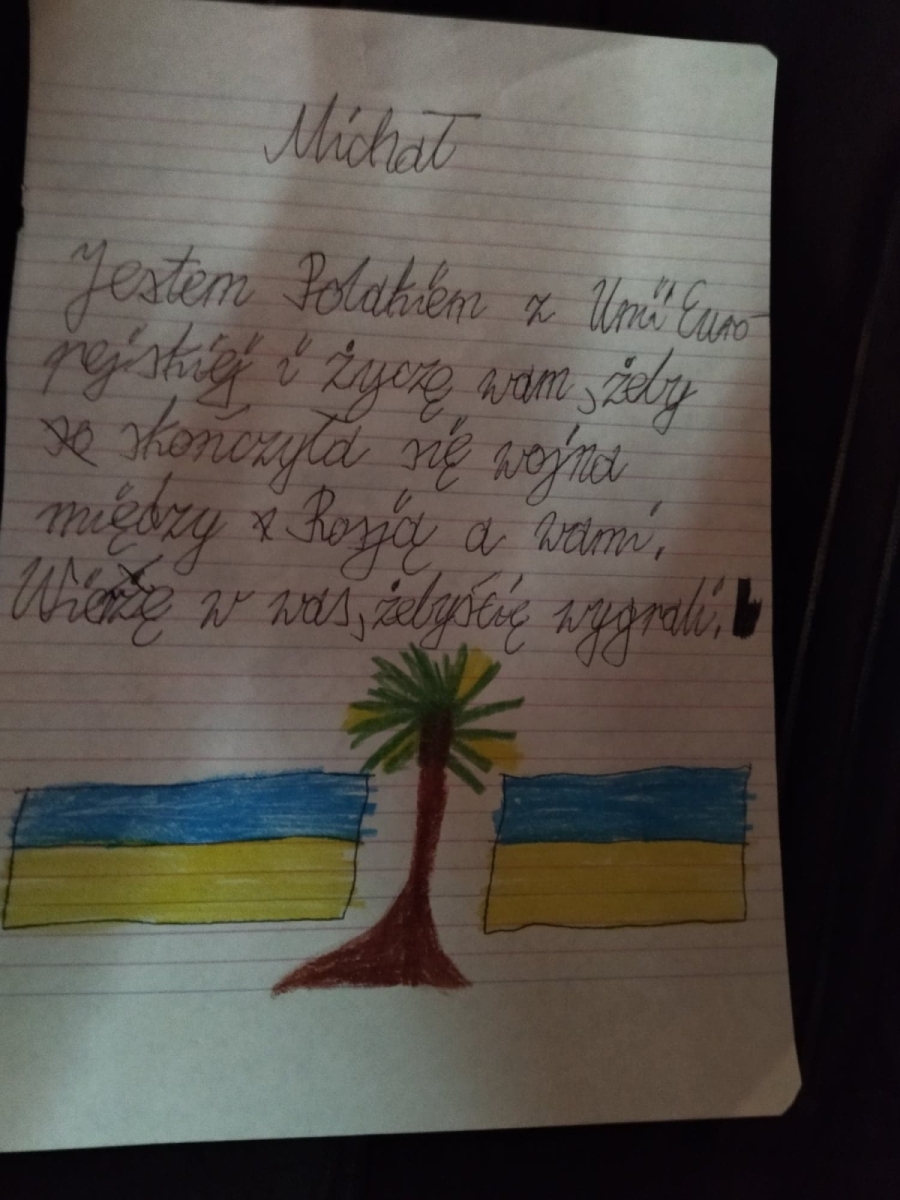 Michał
Jestem Polakiem z Unii Euro-
pejskiej i życzę wam, żeby
skończyła się wojna
między Rosją a wami.
Wierzę w was, żebyście wygrali.